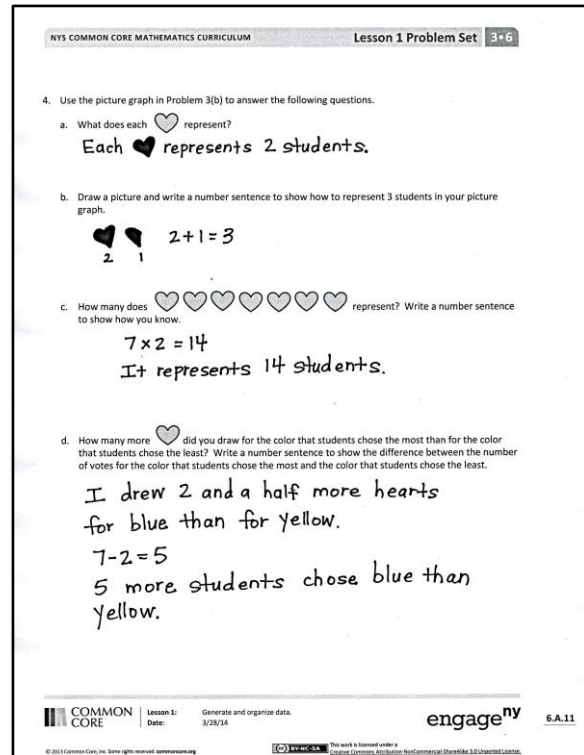 NYS COMMON CORE MATHEMATICS CURRICULUM
Lesson 1 Problem Set 3•6
4. Use the picture graph in Problem 3(b) to answer the following questions.
a. What does each represent?
Each represents 2 students.
b. Draw a picture and write a number sentence to show how to represent 3 students in your picture
graph.
2+1=3
2 1
c. How many does represent? Write a number sentence
to show how you know.
7 x 2 = 14
It represents 14 students.
d. How many more did you draw for the color that students chose the most than for the color
that students chose the least? Write a number sentence to show the difference between the number
of votes for the color that students chose the most and the color that students chose the least.
I drew 2 and a half more hearts
for blue than for yellow.
7-2=5
5 more students chose blue than
yellow.
COMMON
CORE
Lesson 1:
Date:
Generate and organize data.
3/28/14
engage ny
6.A.11
© 2013 Common Core, Inc. Some rights reserved. commoncore.org
(cc) BY-NC-SA
This work is licensed under a
Creative Commons Attribution-NonCommercial-ShareAlike 3.0 Unported License.